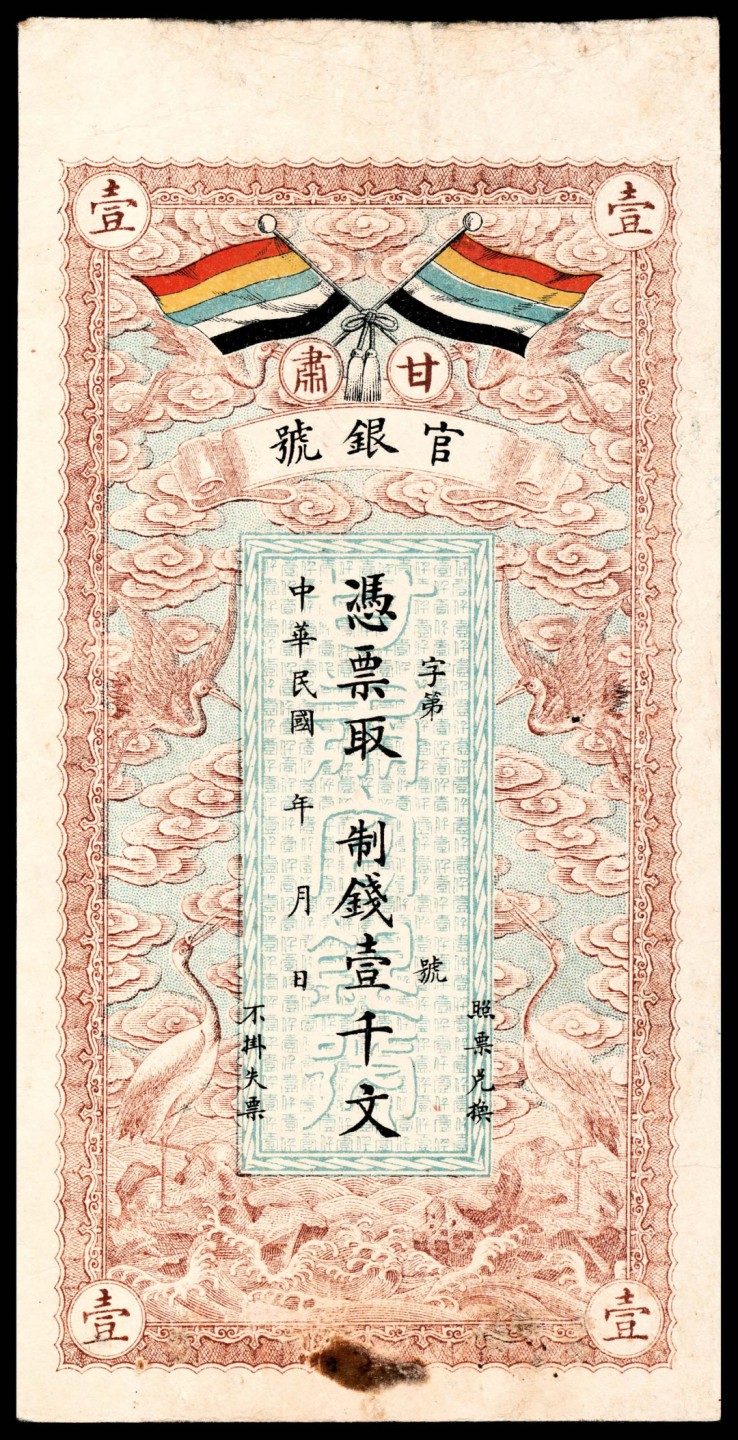 壹
壹
甘肅
官銀號
照票兑換
字第 號
憑票取 制錢壹千文
中華民國 年 月 日
不掛失票
甘肅官銀號
壹
壹